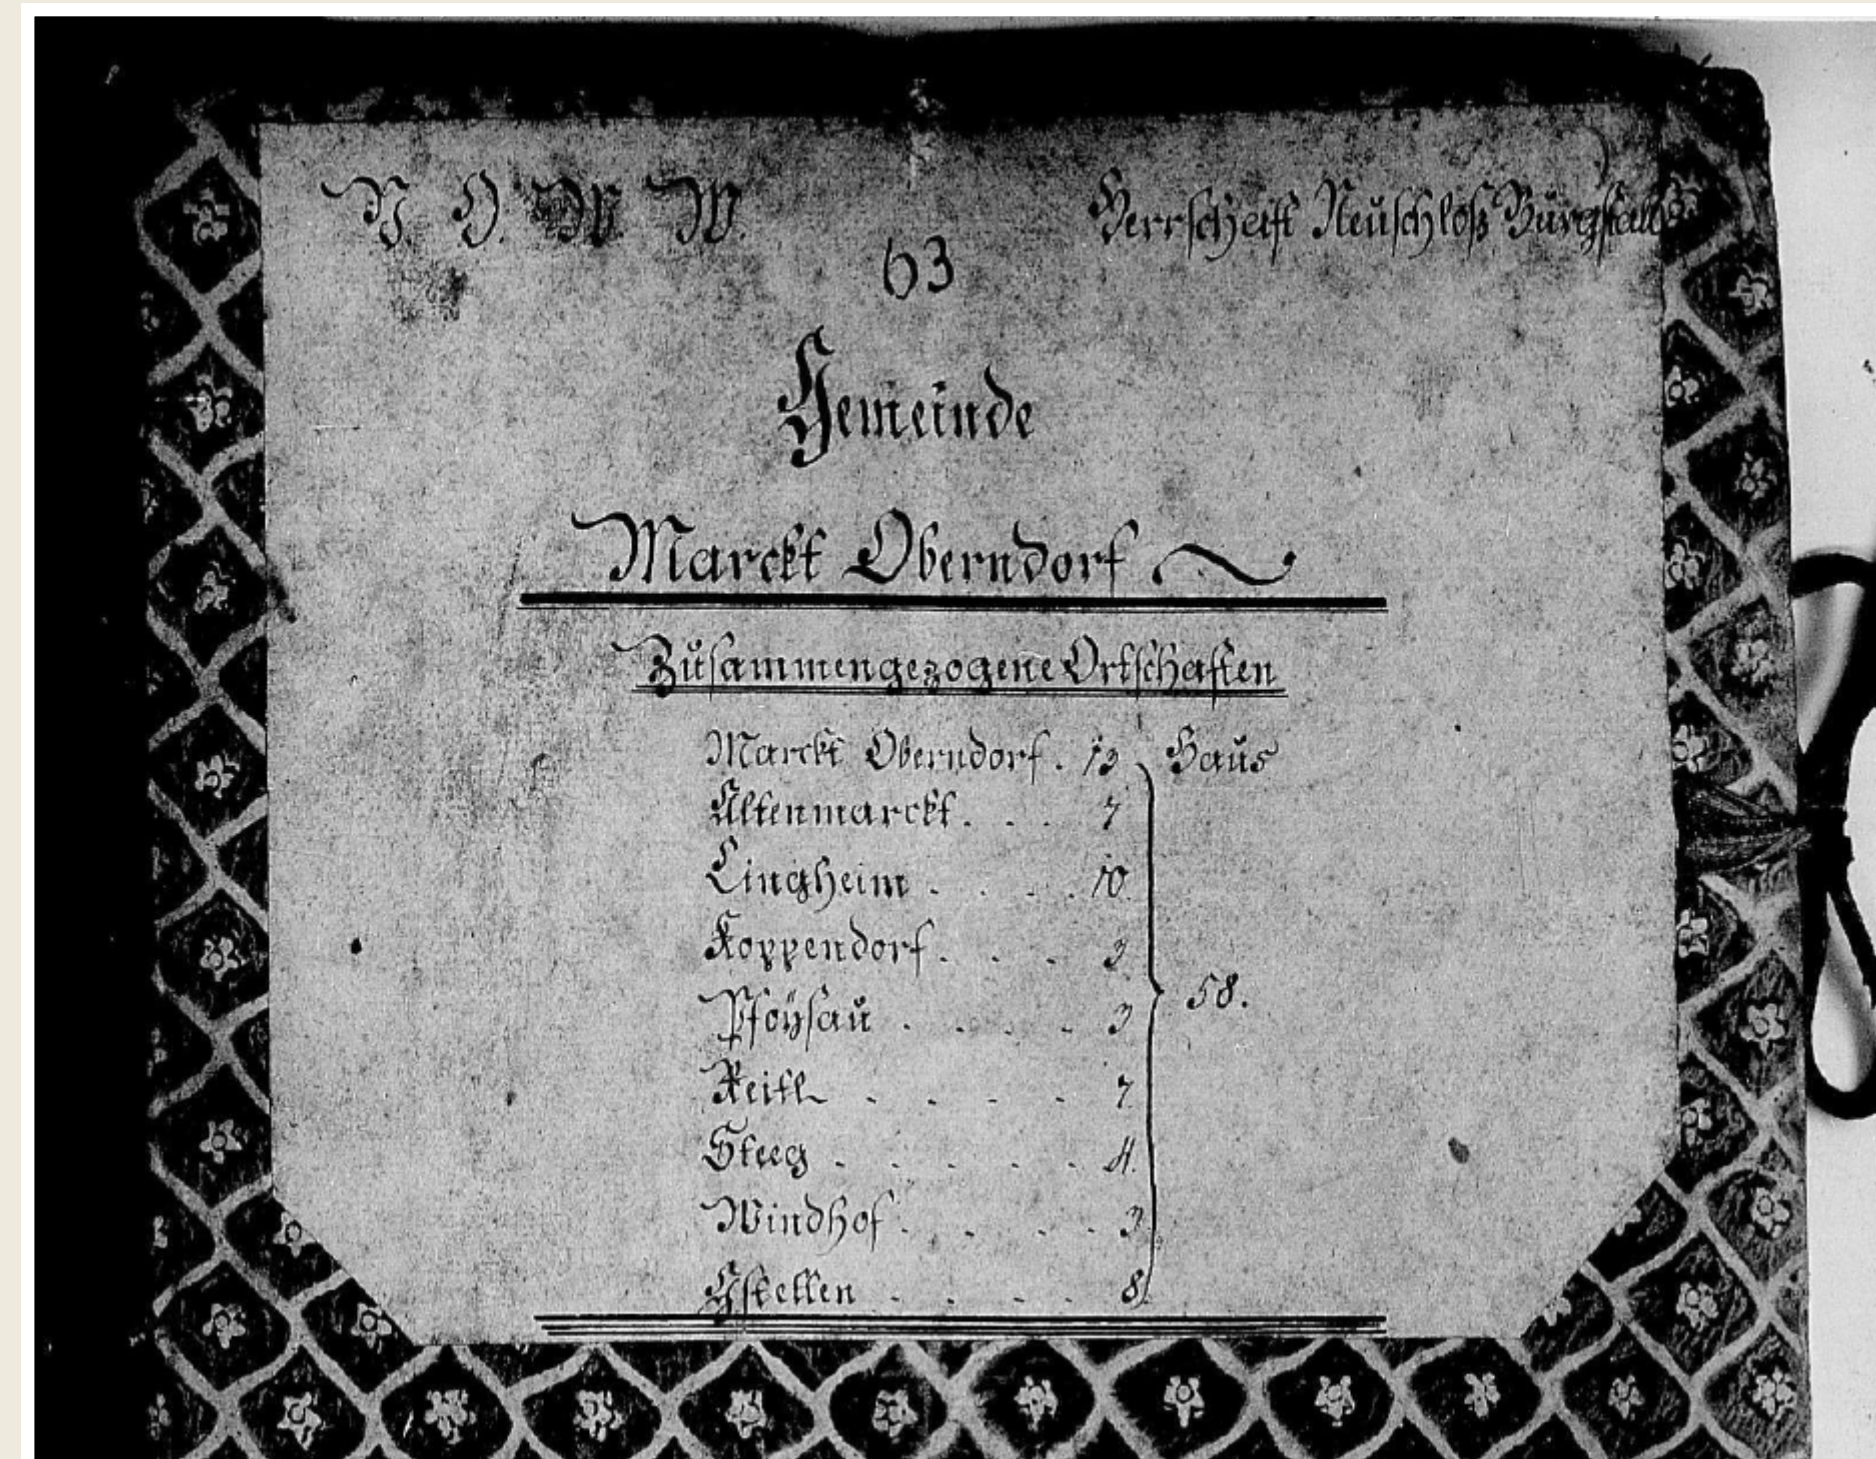 V. O. W. W.
Herrschaft Neuschloß Burgstall
63
Gemeinde
Marckt Oberndorf
Zusammengezogene Ortschaften
Marckt Oberndorf . 13 Haus
Altenmarckt . . . 7
Lingheim . . . . 10
Koppendorf . . . 3
Pfoÿsau . . . . 3 58.
Reitl . . . . 7
Steeg . . . . . 4
Windhof . . . . 3
Gstetten . . . . 8